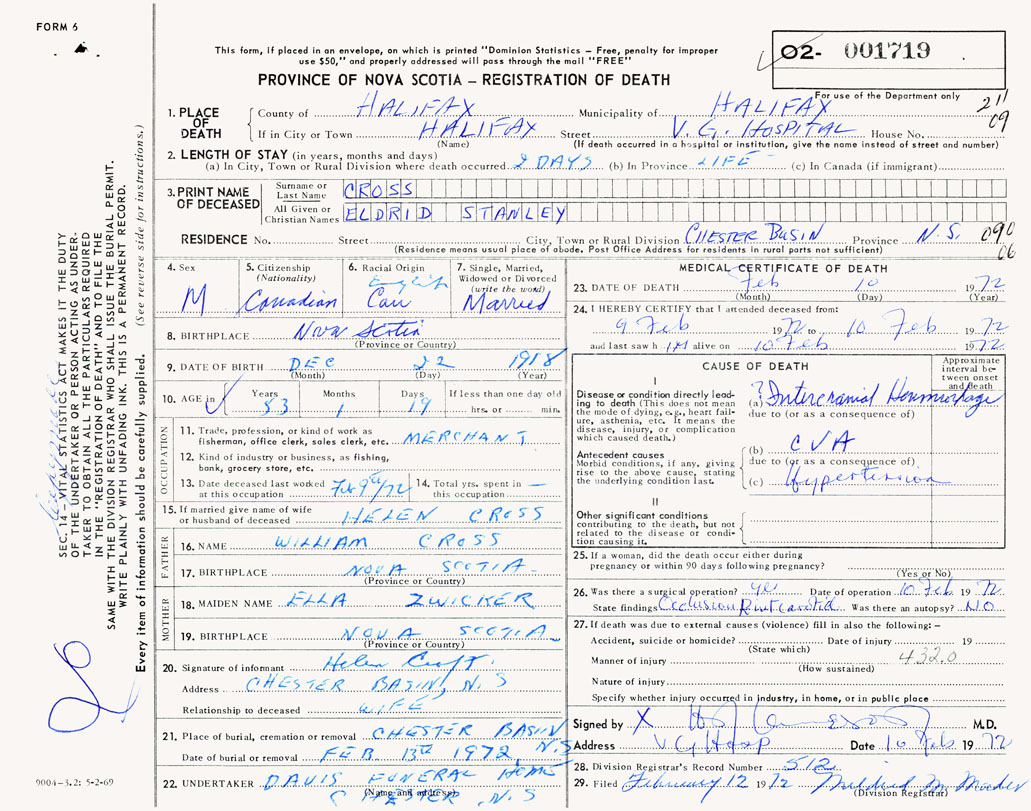 FORM 6
This form, if placed in an envelope, on which is printed "Dominion Statistics – Free, penalty for improper
use $50," and properly addressed will pass through the mail "FREE"
PROVINCE OF NOVA SCOTIA – REGISTRATION OF DEATH
02- 001719
For use of the Department only
211
09
1. PLACE OF DEATH
County of HALIFAX Municipality of HALIFAX
If in City or Town HALIFAX Street V.G. HOSPITAL House No.
(Name) (If death occurred in a hospital or institution, give the name instead of street and number)
2. LENGTH OF STAY (in years, months and days)
(a) In City, Town or Rural Division where death occurred 2 DAYS (b) In Province LIFE (c) In Canada (if immigrant)
3. PRINT NAME OF DECEASED
Surname or Last Name CROSS
All Given or Christian Names ELDRID STANLEY
RESIDENCE No. Street City, Town or Rural Division CHESTER BASIN Province N.S. 090
06
(Residence means usual place of abode. Post Office Address for residents in rural parts not sufficient)
4. Sex M
5. Citizenship (Nationality) Canadian
6. Racial Origin English Cau
7. Single, Married, Widowed or Divorced (write the word) Married
8. BIRTHPLACE Nova Scotia
(Province or Country)
9. DATE OF BIRTH DEC 22 1918
(Month) (Day) (Year)
10. AGE in Years 53 Months 1 Days 19 If less than one day old hrs. or min.
OCCUPATION
11. Trade, profession or kind of work as fisherman, office clerk, sales clerk, etc. MERCHANT
12. Kind of industry or business, as fishing, bank, grocery store, etc.
13. Date deceased last worked at this occupation Feb 9th/72 14. Total yrs. spent in this occupation —
15. If married give name of wife or husband of deceased HELEN CROSS
FATHER
16. NAME WILLIAM CROSS
17. BIRTHPLACE NOVA SCOTIA
(Province or Country)
MOTHER
18. MAIDEN NAME ELLA ZWICKER
19. BIRTHPLACE NOVA SCOTIA
(Province or Country)
20. Signature of informant Helen
Address CHESTER BASIN, N.S
Relationship to deceased WIFE
21. Place of burial, cremation or removal CHESTER BASIN N.S
Date of burial or removal FEB. 13th 1972
22. UNDERTAKER DAVIS FUNERAL HOME
(Name and address)
CHESTER, N.S
MEDICAL CERTIFICATE OF DEATH
23. DATE OF DEATH Feb 10 1972
(Month) (Day) (Year)
24. I HEREBY CERTIFY that I attended deceased from:
9 Feb 1972 to 10 Feb 1972
and last saw him alive on 10 Feb 1972
CAUSE OF DEATH
Approximate interval between onset and death
I
Disease or condition directly leading to death (This does not mean the mode of dying, e.g., heart failure, asthenia, etc. It means the disease, injury, or complication which caused death.)
(a) ? Intercranial Hemmorhage
due to (or as a consequence of)
Antecedent causes
Morbid conditions, if any, giving rise to the above cause, stating the underlying condition last.
(b) CVA
due to (or as a consequence of)
(c) Hypertension
II
Other significant conditions contributing to the death, but not related to the disease or condition causing it.
25. If a woman, did the death occur either during pregnancy or within 90 days following pregnancy?
(Yes or No)
26. Was there a surgical operation? yes Date of operation 10 Feb 1972
State findings Occlusion Rint carotid Was there an autopsy? NO
27. If death was due to external causes (violence) fill in also the following: –
Accident, suicide or homicide? Date of injury 19
(State which)
Manner of injury 432.0
(How sustained)
Nature of injury
Specify whether injury occurred in industry, in home, or in public place
Signed by X M.D.
Address V G Hosp Date 10 Feb. 1972
28. Division Registrar's Record Number 512
29. Filed February 12 1972 Mildred M.
(Division Registrar)
SEC. 14 – VITAL STATISTICS ACT MAKES IT THE DUTY
OF THE UNDERTAKER OR PERSON ACTING AS UNDER-
TAKER TO OBTAIN ALL THE PARTICULARS REQUIRED
IN THE "REGISTRATION OF DEATH" AND FILE THE
SAME WITH THE DIVISION REGISTRAR WHO SHALL ISSUE THE BURIAL PERMIT.
WRITE PLAINLY WITH UNFADING INK. THIS IS A PERMANENT RECORD.
Every item of information should be carefully supplied. (See reverse side for instructions.)
9004-3.2: 5-2-69